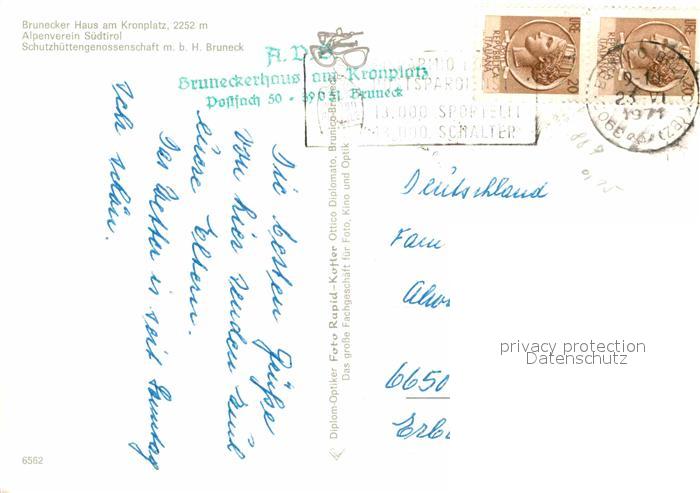 Brunecker Haus am Kronplatz, 2252 m
Alpenverein Südtirol
Schutzhüttengenossenschaft m. b. H. Bruneck
A.V.S.
Bruneckerhaus am Kronplatz
Postfach 50 - 39031 Bruneck
13.000 SPORTELLI
13.000 SCHALTER
LIRE
REPUBBLICA ITALIANA
LIRE
REPUBBLICA ITALIANA
1971
Die besten Grüße
von hier senden Euch
eure Eltern.
Das Wetter is seit Samstag
sehr schön.
Diplom-Optiker Foto Rapid-Kofler Ottico Diplomato, Brunico-Bruneck
Das große Fachgeschäft für Foto, Kino und Optik
Deutschland
Fam
6650
privacy protection
Datenschutz
6562